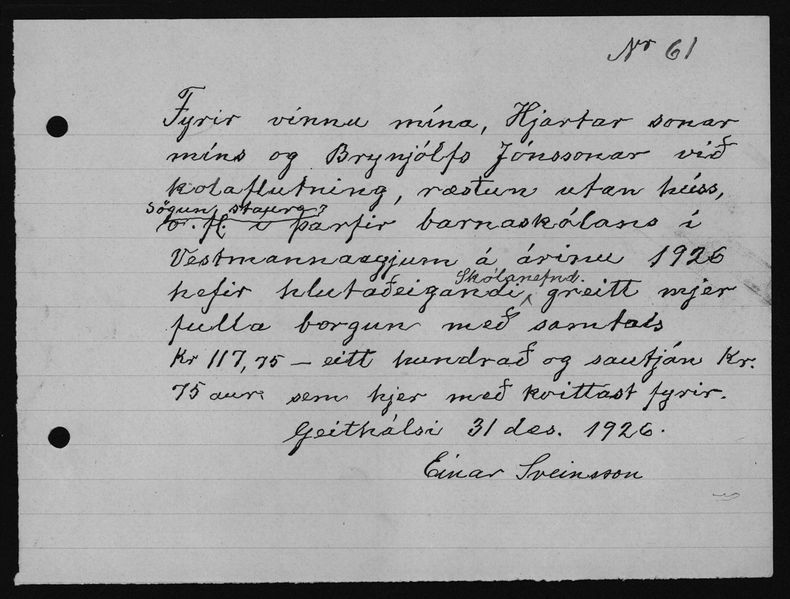 Nr 61
Fyrir vinnu mína, Hjartar sonar
míns og Brynjólfs Jónssonar við
kolaflutning, ræstun utan húss,
sögun
o. fl. í þarfir barnaskólans í
Vestmannaeyjum á árinu 1926
Skólanefnd.
hefir hlutaðeigandi greitt mjer
fulla borgun með samtals
Kr 117,75 – eitt hundrað og sautján Kr.
75 aur. sem hjer með kvittast fyrir.
Geithálsi 31 des. 1926.
Einar Sveinsson